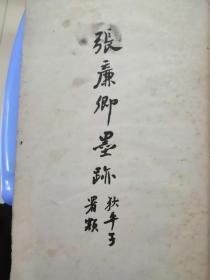 張廉卿墨跡
狄平子
署瀕